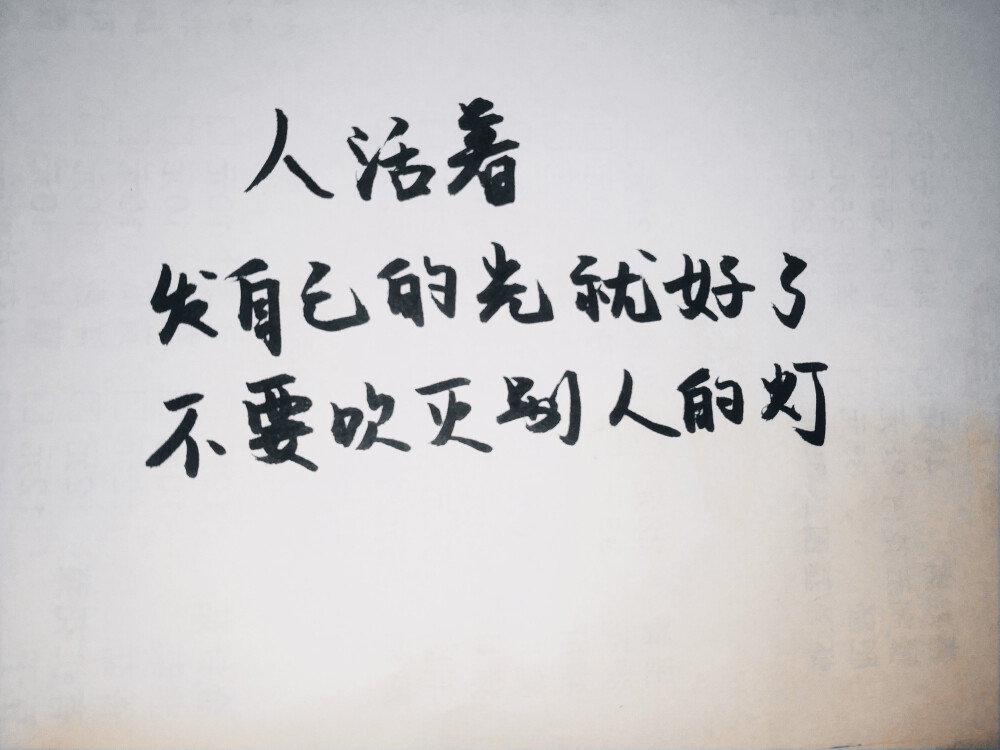 人活着
发自己的光就好了
不要吹灭别人的灯